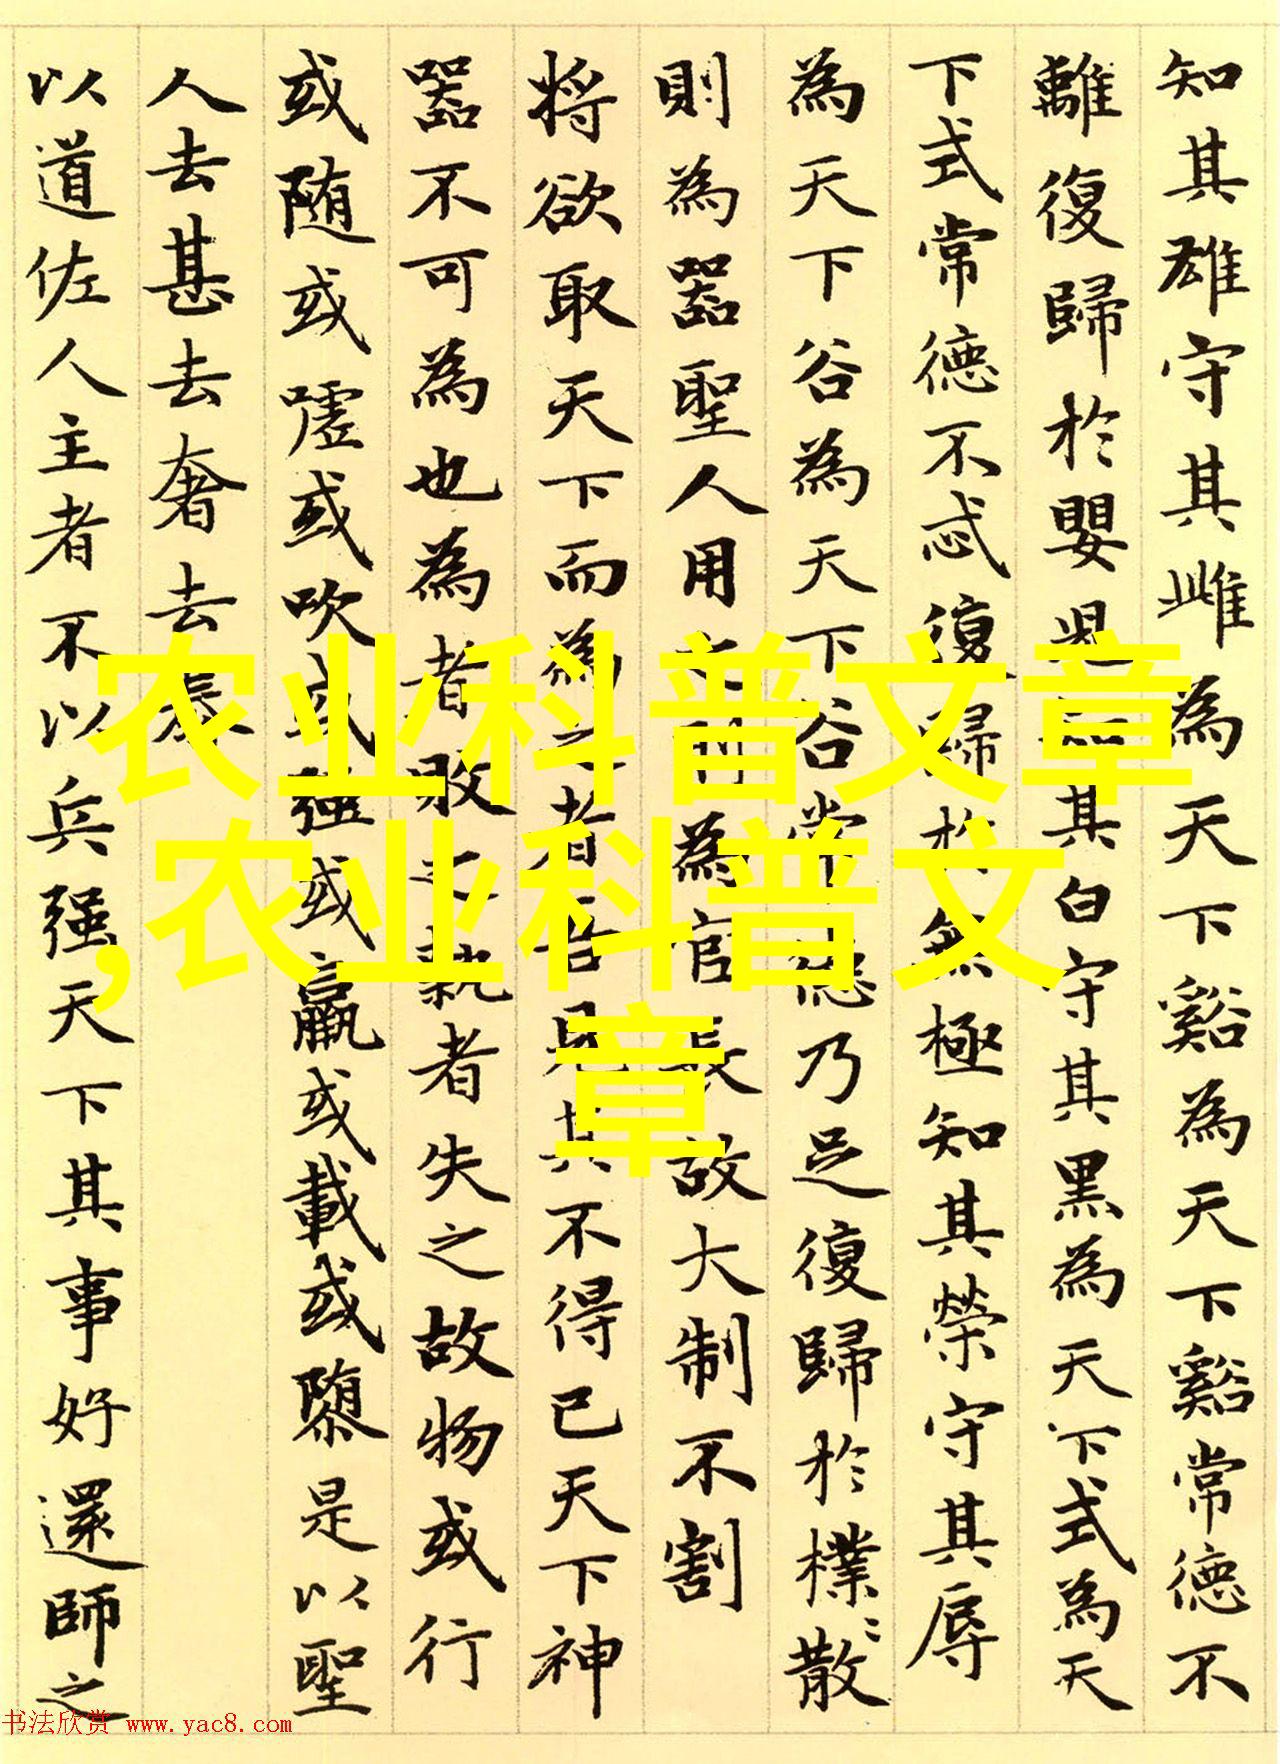 知其雄守其雌為天下谿為天下谿常德不
離復歸於嬰兒知其白守其黑為天下式為天
下式常德不忒復歸於無極知其榮守其辱
為天下谷為天下谷常德乃足復歸於樸〻散
則為器聖人用之則為官長故大制不割
将欲取天下而為之者吾見其不得已天下神
器不可為也為者敗之執者失之故物或行
或随或嘘或吹或强或羸或載或隳是以聖
人去甚去奢去泰
以道佐人主者不以兵强天下其事好還師之
农业科普文章
,农业科普文
章
书法欣赏 www.yac8.com